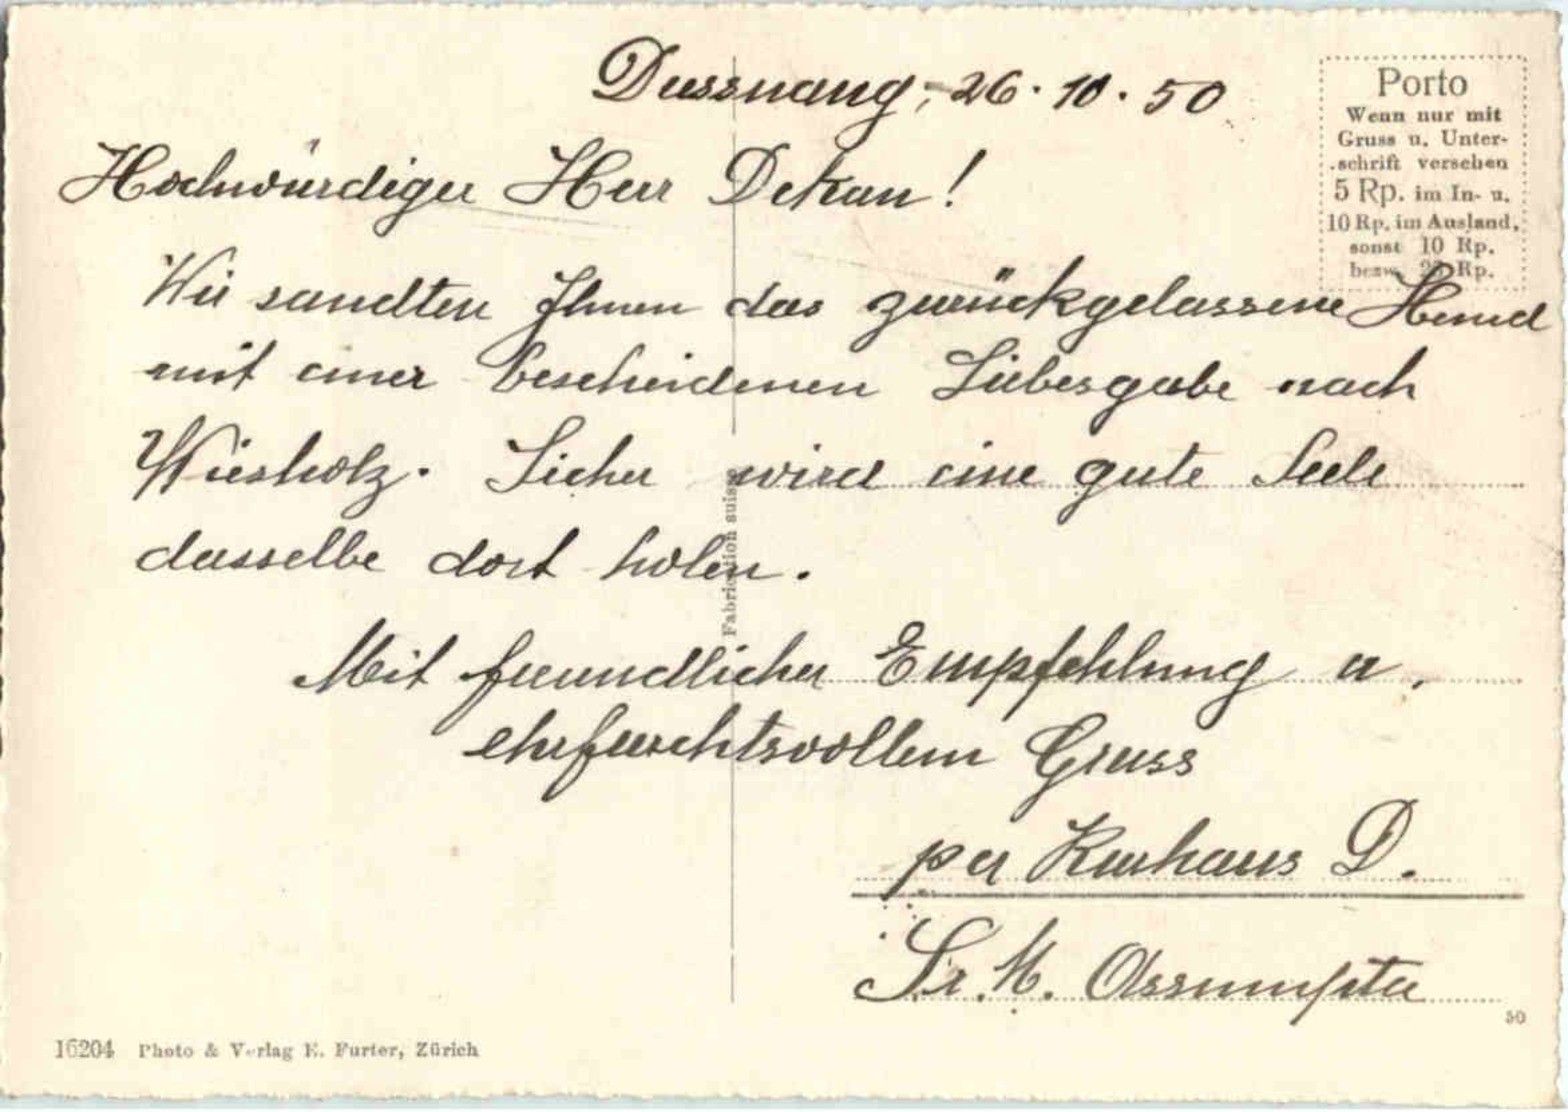 Dussnang, 26. 10. 50
Hochwürdiger Herr Dekan!
Wir sandten Ihnen das zurückgelassene Hemd
mit einer bescheidenen Liebesgabe nach
Wiesholz. Sicher wird eine gute Seele
dasselbe dort holen.
Mit freundlicher Empfehlung u.
ehrfurchtsvollem Gruss
per Kurhaus D.
Sr. M. Assumpta
Porto
Wenn nur mit
Gruss u. Unter-
schrift versehen
5 Rp. im In- u.
10 Rp. im Ausland,
sonst 10 Rp.
bezw. 20 Rp.
Fabrication suisse
50
16204 Photo & Verlag E. Furter, Zürich